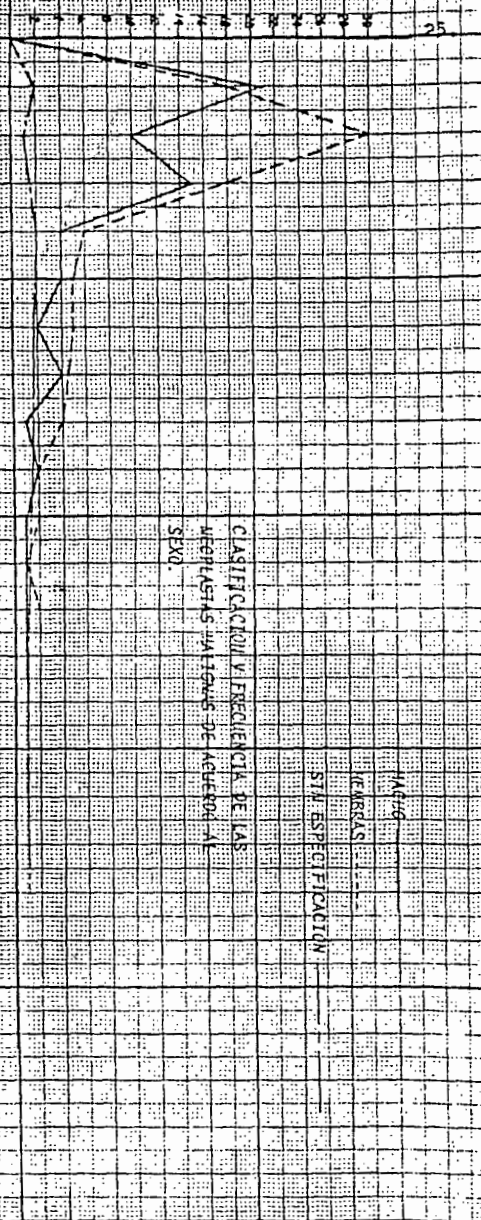 25
MACHO
HEMBRAS
SIN ESPECIFICACION
CLASIFICACION Y FRECUENCIA DE LAS
NEOPLASIAS MALIGNAS DE ACUERDO AL
SEXO